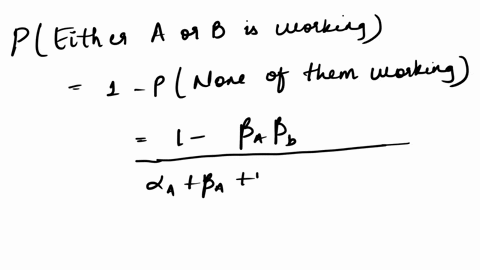 P(Either A or B is working)
= 1 - P(None of them working)
= 1 - βA βb
αA + βA +